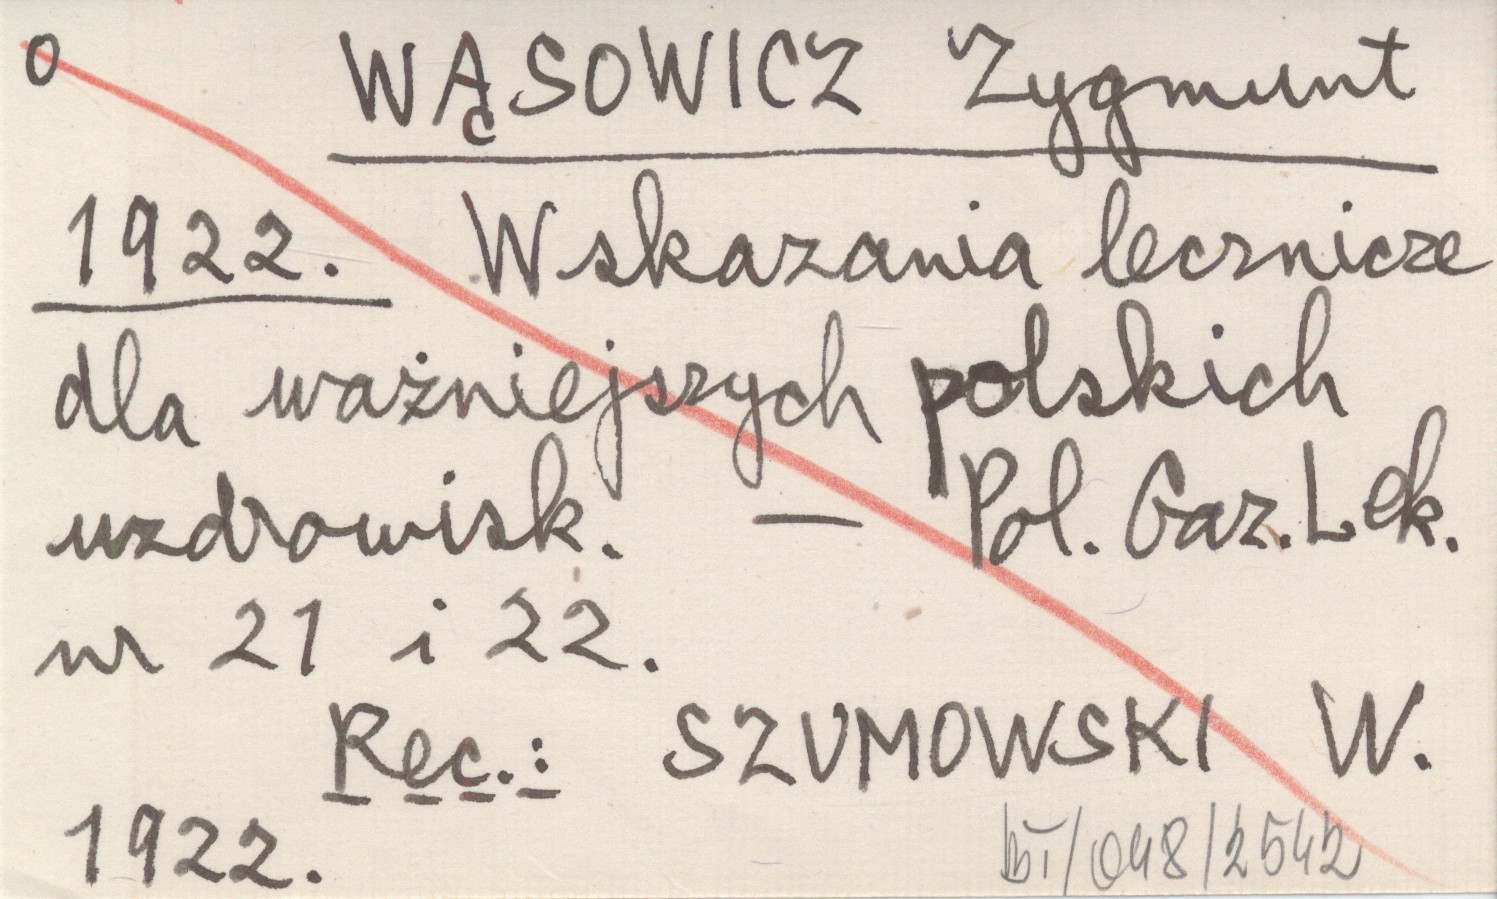 O WĄSOWICZ Zygmunt
1922. Wskazania lecznicze
dla ważniejszych polskich
uzdrowisk. — Pol. Gaz. Lek.
nr 21 i 22.
Rec.: SZUMOWSKI W.
1922.
/048/2542